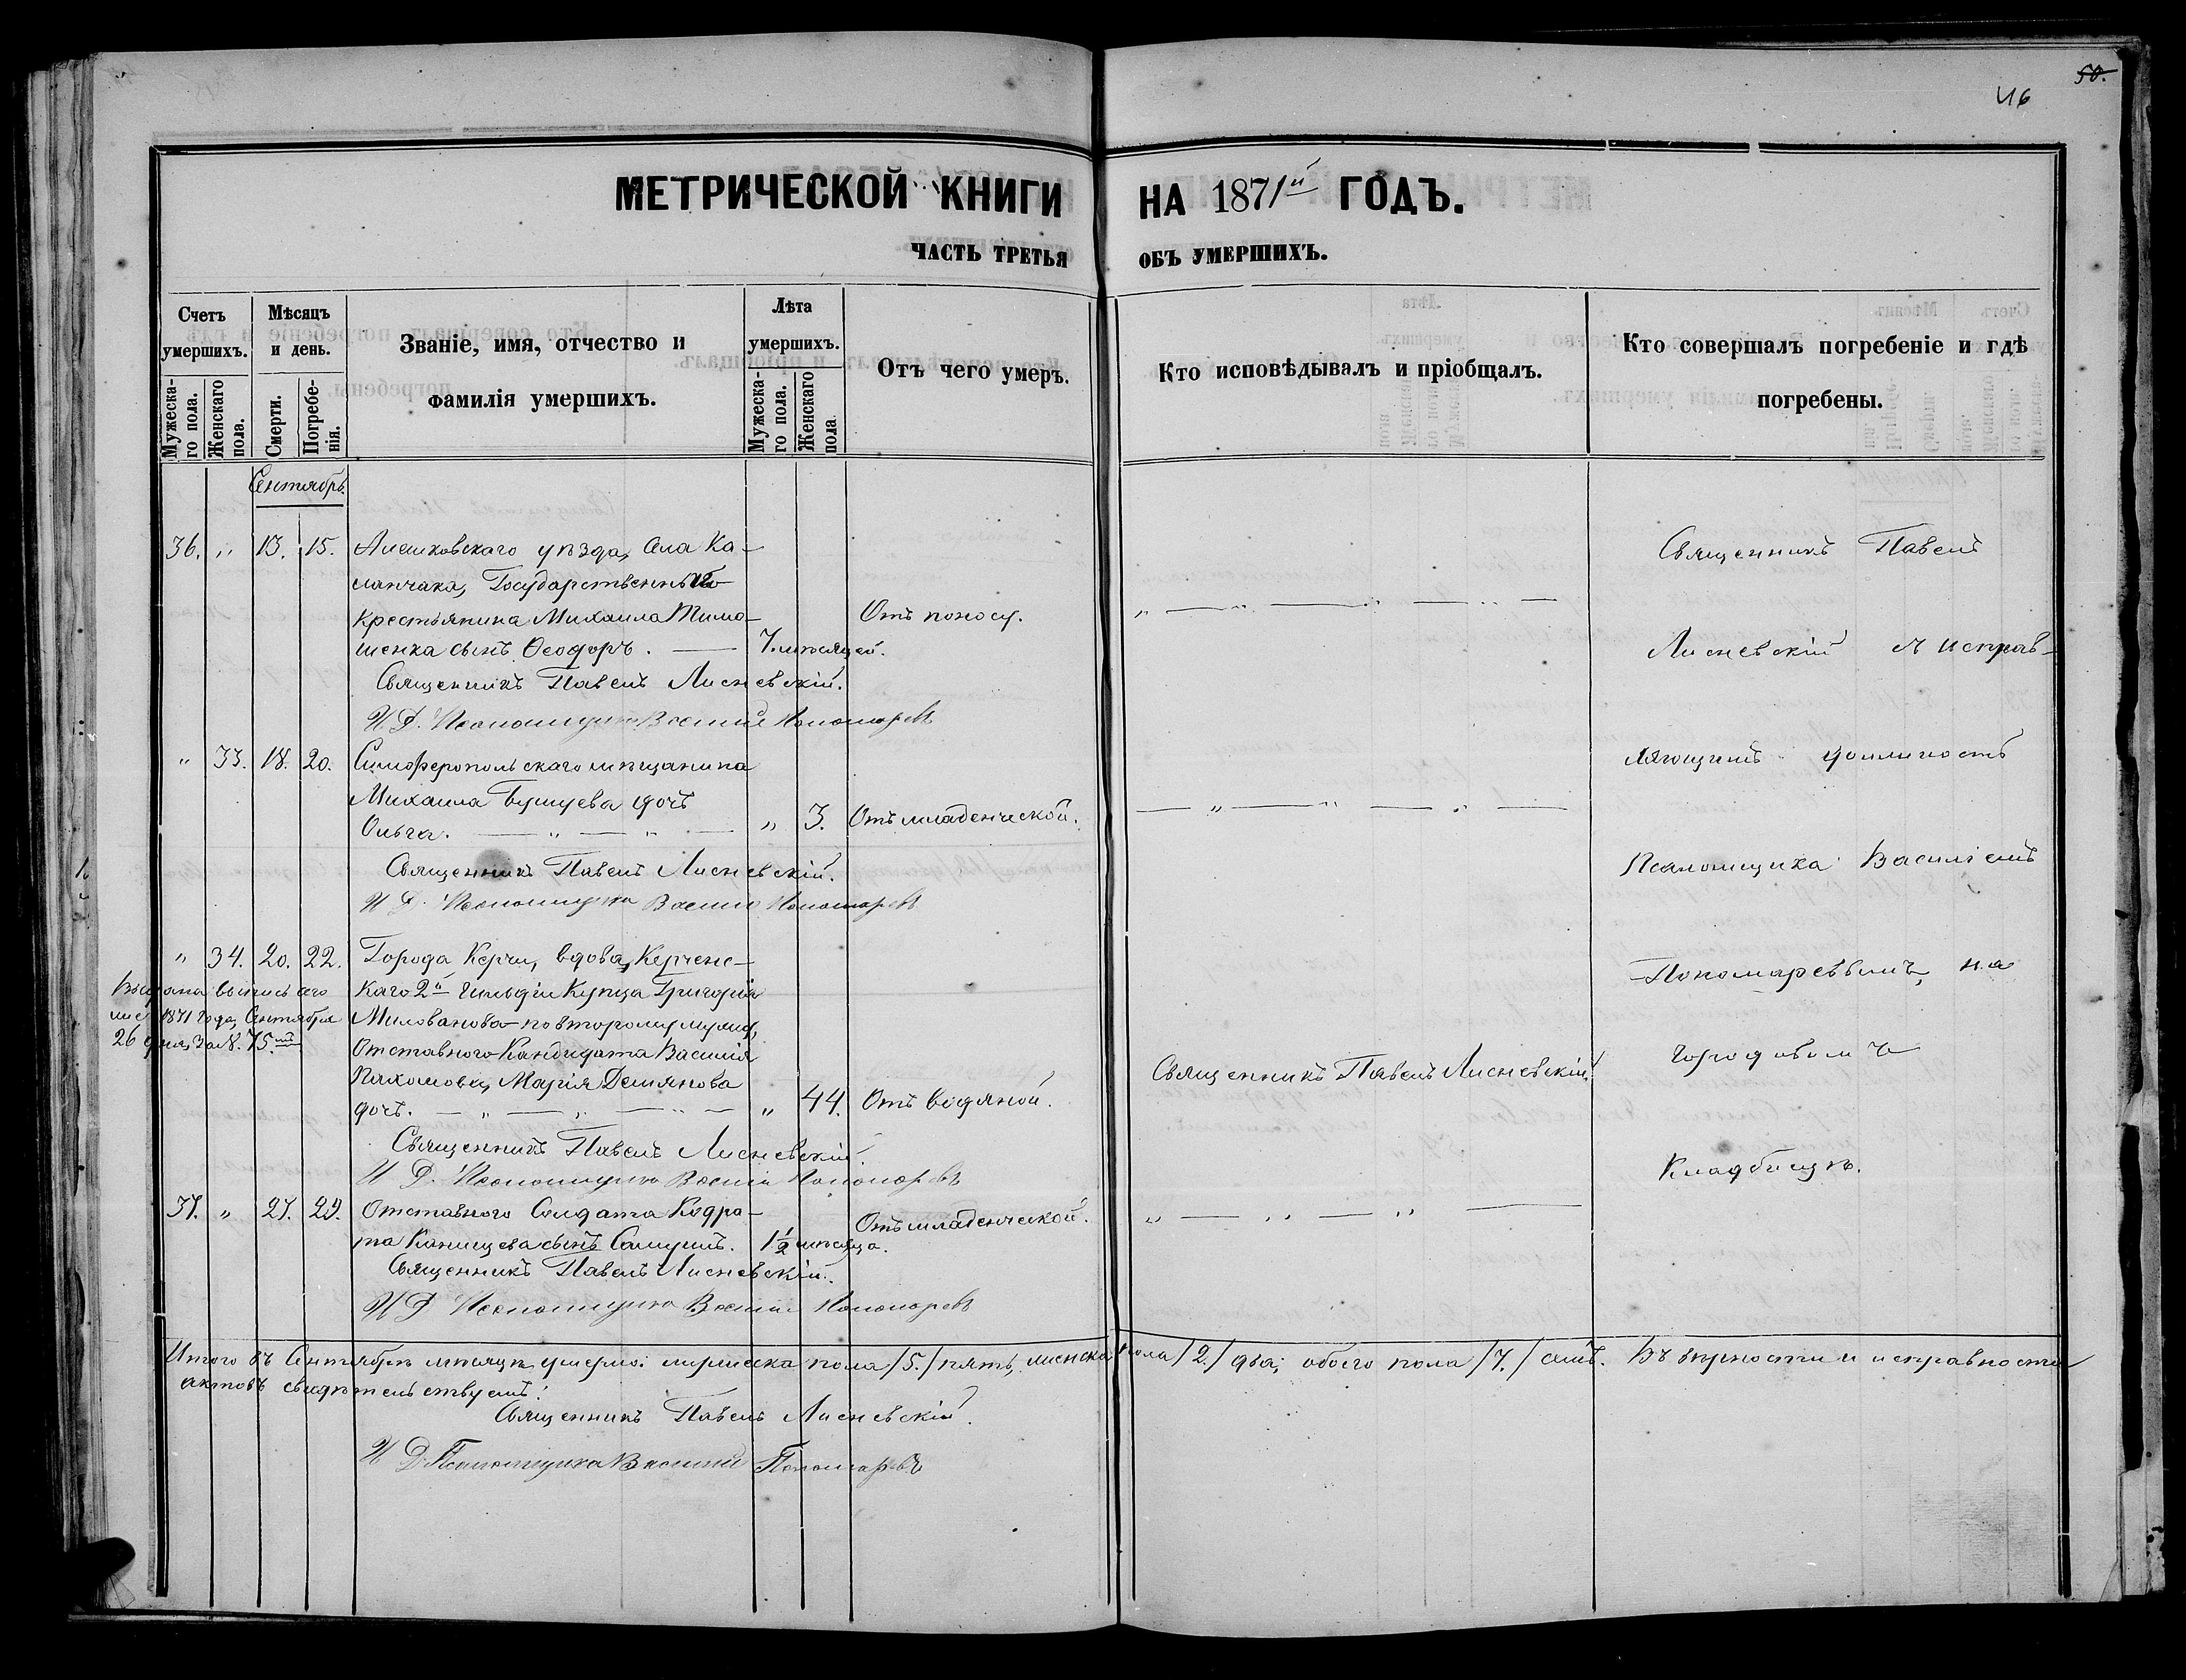 50.
46
МЕТРИЧЕСКОЙ КНИГИ НА 1871й ГОДЪ.
ЧАСТЬ ТРЕТЬЯ ОБЪ УМЕРШИХЪ.
Счетъ умершихъ.
Мужескаго пола.
Женскаго пола.
Мѣсяцъ и день.
Смерти.
Погребенія.
Званіе, имя, отчество и
фамилія умершихъ.
Лѣта умершихъ.
Мужескаго пола.
Женскаго пола.
Отъ чего умеръ.
Кто исповѣдывалъ и пріобщалъ.
Кто совершалъ погребеніе и гдѣ
погребены.
Сентябрь.
36. " 13. 15. Алешковскаго уѣзда, села Ка-
ланчака, Государственнаго
Крестьянина Михаила Тимо- Отъ поносу.
шенка сынъ Ѳеодоръ. — 7. мѣсяцей.
Священникъ Павелъ Лисневскій.
И Д. Псаломщика Василій Пономаревъ
" 33. 18. 20. Симферопольскаго мѣщанина
Михаила дочь
Ольга. — " — " — " 3. Отъ младенческой.
Священникъ Павелъ Лисневскій.
И Д. Псаломщика Василій Пономаревъ
" 34. 20. 22. Города Керчи, вдова, Керченс-
каго 2й Гильдіи Купца Григорія
Милованова — по второму мужу,
Отставного Кандидата Василія
Пахомова, Марія Демянова
дочь. — " — " — " — " 44. Отъ водяной. Священникъ Павелъ Лисневскій.
Выдана выпись сего
1871 года, Сентября
26 дня, за №. 75.мъ
Священникъ Павелъ Лисневскій.
И Д. Псаломщика Василій Пономаревъ
37. " 27. 29. Отставного Солдата Кодра-
та Канищева сынъ Самуилъ. 1½ мѣсяца. Отъ младенческой.
Священникъ Павелъ Лисневскій.
И Д Псаломщика Василій Пономаревъ
Священникъ Павелъ
Лисневскій съ исправ-
ляющимъ должность
Псаломщика Василіемъ
Пономаревымъ, на
городовомъ
Кладбищѣ.
Итого въ Сентябрѣ мѣсяцѣ умерло: мужеска пола /5./ пять, женска пола /2./ два; обоего пола /7./ семь. Въ вѣрности и исправности
актовъ свидѣтельствуемъ:
Священникъ Павелъ Лисневскій.
И Д. Псаломщика Василій Пономаревъ